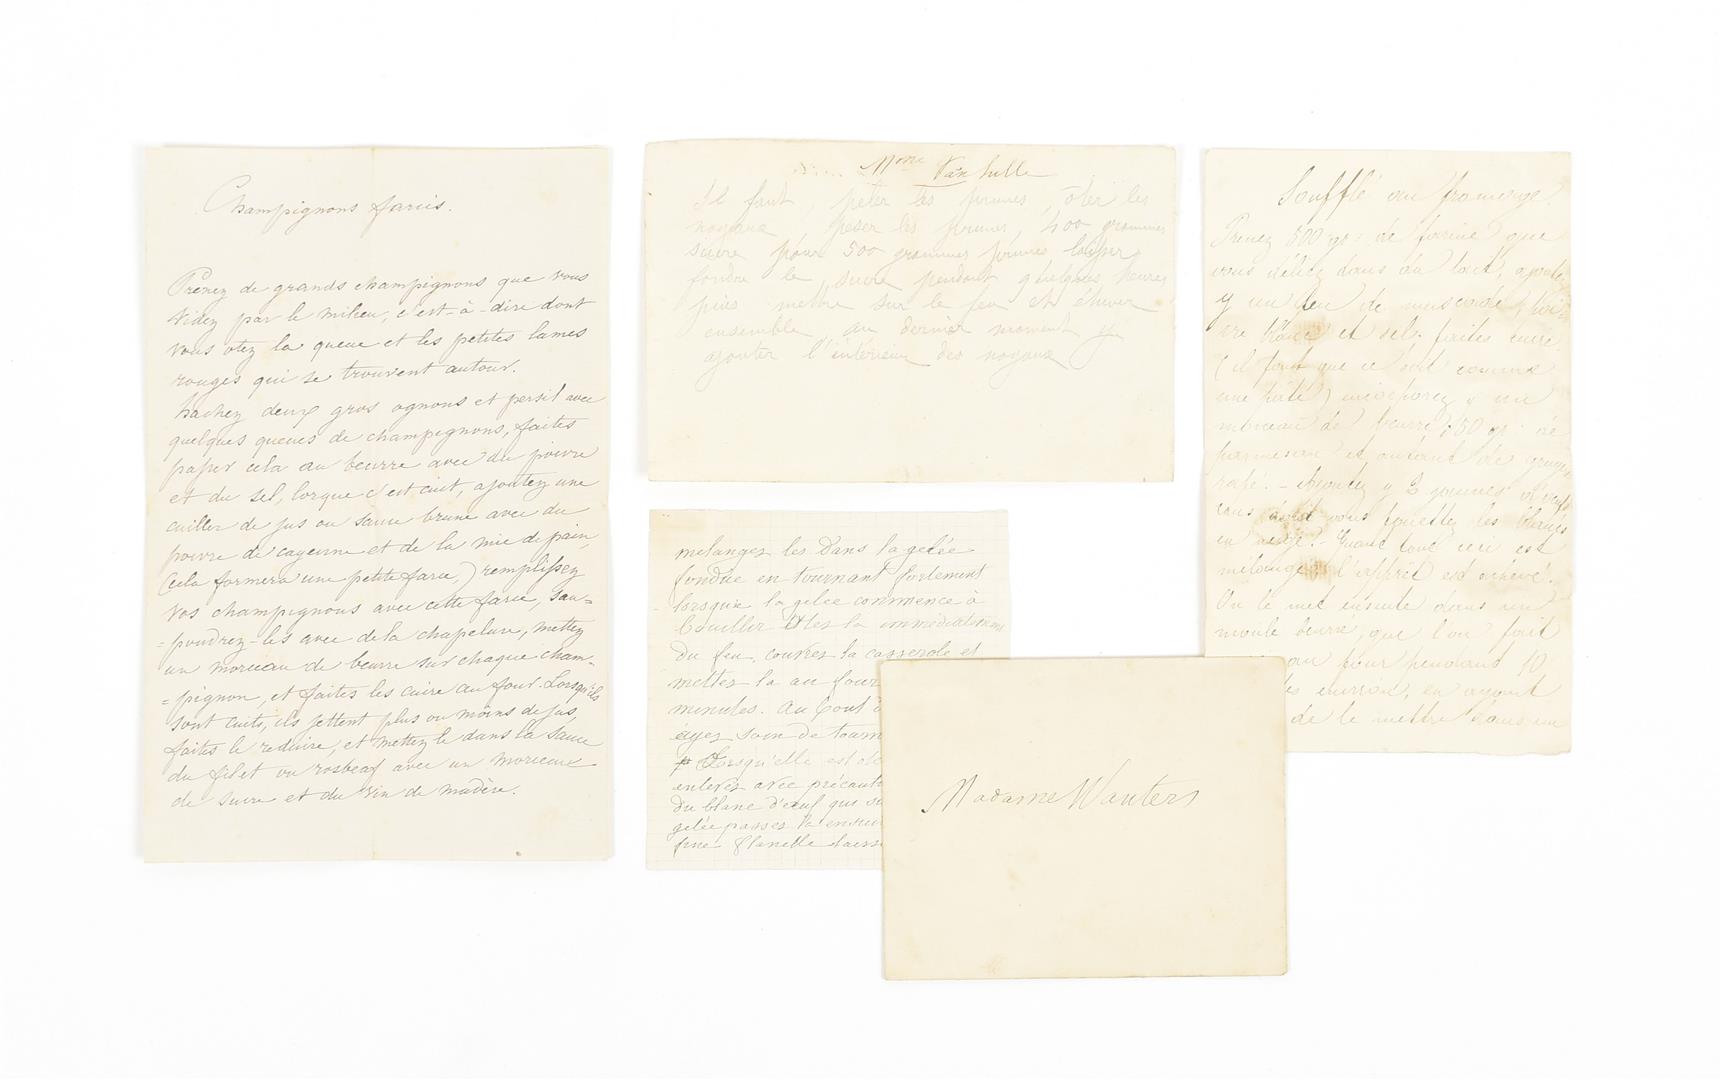 Champignons farcis.
Prenez de grands champignons que vous
videz par le milieu, c'est-à-dire dont
vous otez la queue et les petites lames
rouges qui se trouvent autour.
Hachez deux gros ognons et persil avec
quelques queues de champignons, faites
passer cela au beurre avec du poivre
et du sel, lorque c'est cuit, ajoutez une
cuiller de jus ou sauce brune avec du
poivre de cayenne et de la mie de pain,
(cela formera une petite farce,) remplissez
vos champignons avec cette farce, sau=
=poudrez-les avec de la chapelure, mettez
un morceau de beurre sur chaque cham=
=pignon, et faites les cuire au four. Lorsqu'ils
sont cuits, ils jettent plus ou moins de jus,
faites le reduire, et mettez le dans la sauce
du filet ou rosbeaf avec un morceau
de sucre et du vin de madère.
Mme Vanhulle
Il faut, peler les prunes, ôter les
noyaux, peser les prunes, 400 grammes
sucre pour 500 grammes prunes laisser
fondre le sucre pendant quelques heures
puis mettre sur le feu et étuver
ensemble, au dernier moment y
ajouter l'intérieur des noyaux
melangez les dans la gelée
fondue en tournant fortement
lorsque la gelée commence à
bouillir ôtes la immédiatement
du feu, couvres la casserole et
mettes la au four
minutes. Au bout
ayez soin de tourn
Lorsqu'elle est
enleves avec précaut
du blanc d'œuf qui
gelée passes la ensui
fine flanelle laiss
Madame Wauters
Soufflé au fromage.
Prenez 500 gr: de farine que
vous déliez dans du lait, ajoutez
y un peu de muscade, poi-
vre blanc et sel. faites cuire
(il faut que ce soit comme
une pâte) incorporez y un
morceau de beurre, 50 gr. de
parmesan et autant de gruyère
rapé. - Ajoutez y 3 jaunes d'œufs
sans dont vous fouettez les blancs
en neige. - Quand tout ceci est
mélangé l'apprêt est achevé.
On le met ensuite dans un
moule beurré, que l'on fait
au four pendant 10
tes environ, en ayant
de le mettre dans un